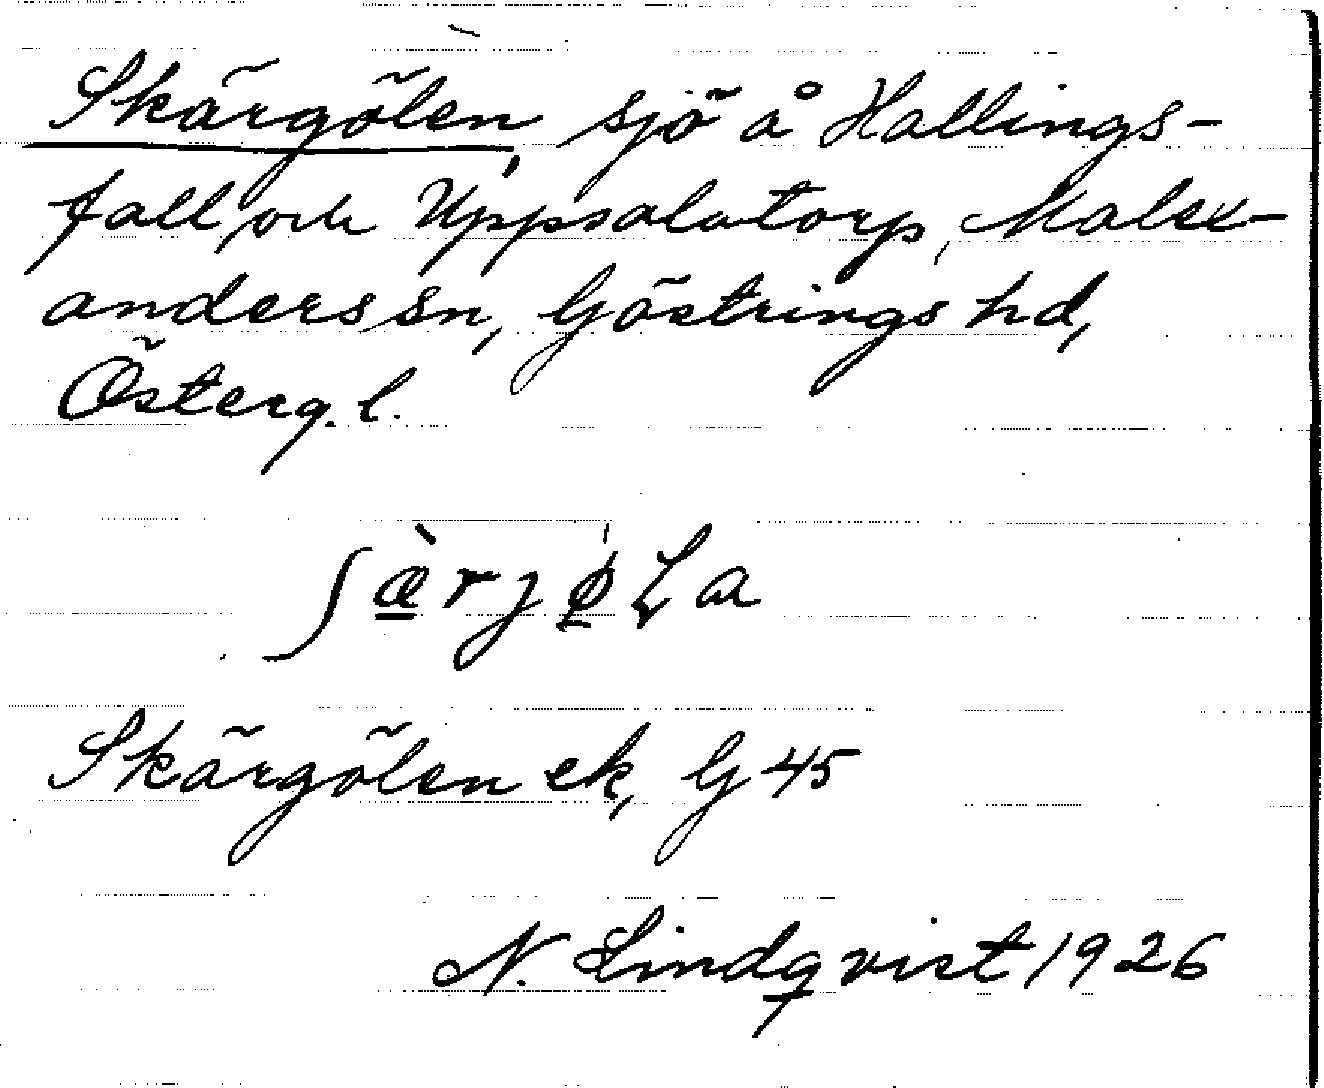 Skärgölen, sjö å Hallings-
fall och Uppsalatorp, Malex-
anders sn, Göstrings hd,
Österg. l.
Skärgölen ek, G 45
N. Lindqvist 1926